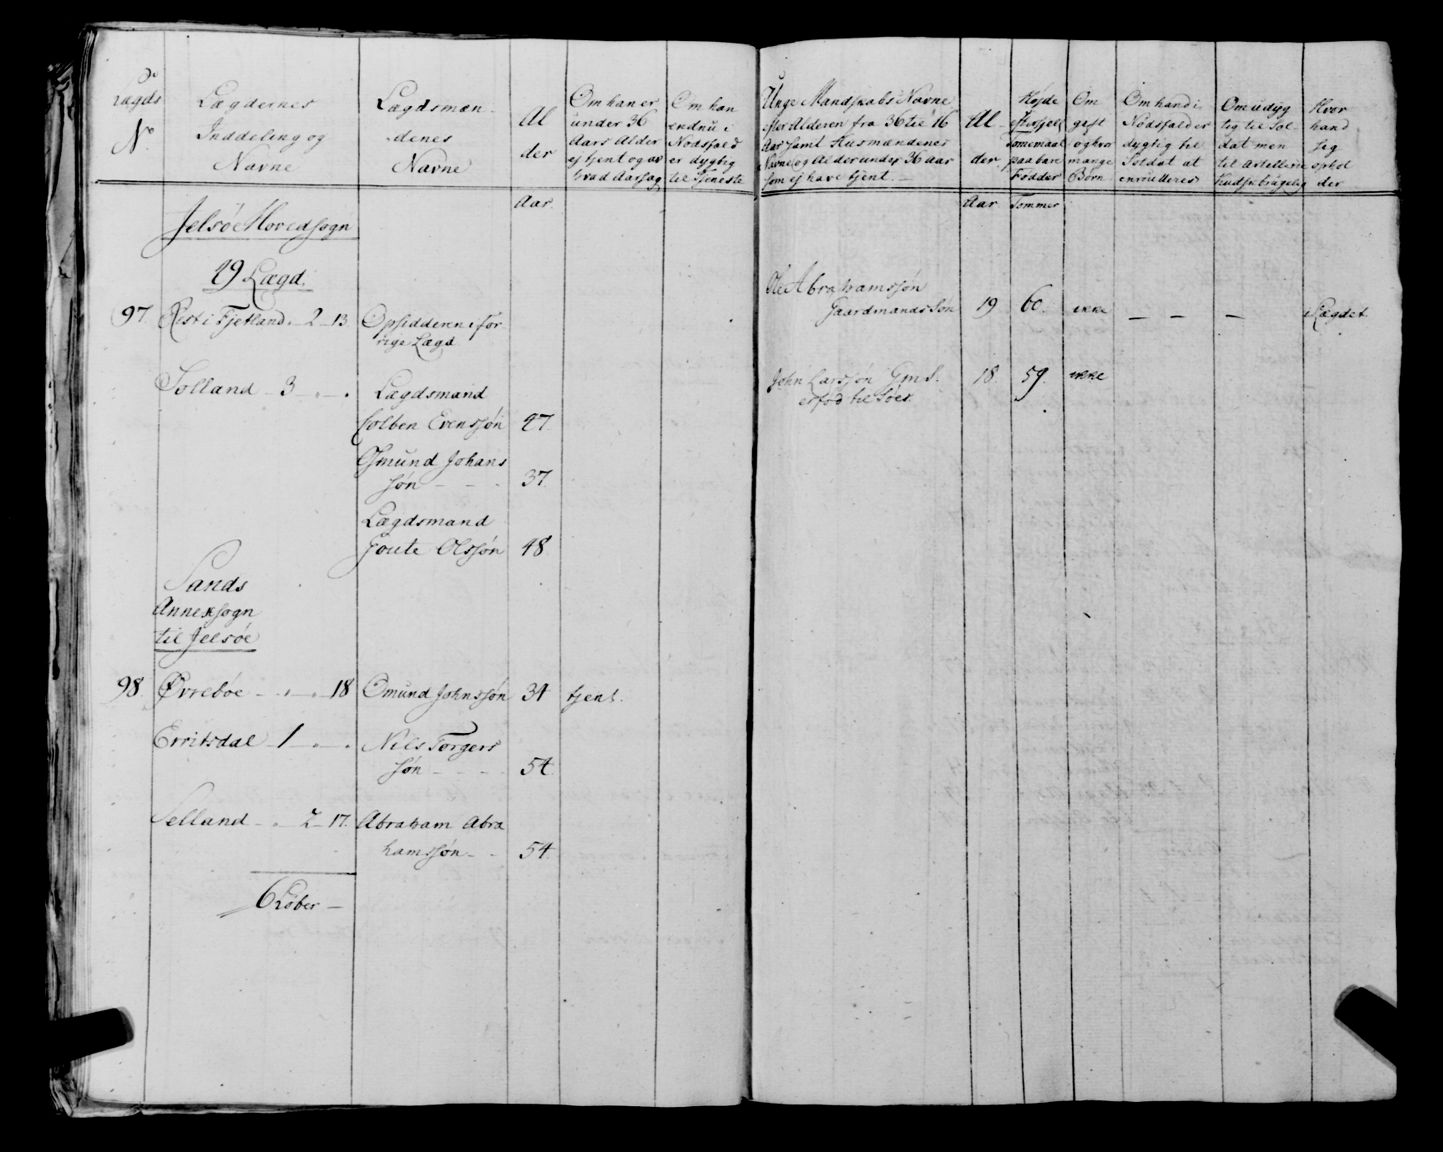 Lægds
N.º
Lægdernes
Inddeling og
Navne
Lægdsmæn-
denes
Navne
Al
der
Om han er
under 36
Aars Alder
ej tjent og av
hvad Aarsag
Om han
endnu i
Nødsfald
er dygtig
til Tjeneste
Unge Mandskabs Navne
efter Alderen fra 36 til 16
Aar samt Husmændenes
Navne og Alder under 36 Aar
som ej have tjent.
Al-
der.
Højde
efter sjæl
paa bare
Fødder
Om
gift
og hvor
mange
Børn
Om hand i
Nødsfald er
dygtig til
Soldat at
enroulleres
Om udyg
tig til Sol-
dat men
til Artellerie
Hvor
hand
sig
ophol
der
Aar.
Aar
Tommer
Jelsøe Hovedsogn
49 Lægd.
97. Rest i Fjetland. 2 - 13 Opsidderen i for
rige Lægd
Ole Abrahamssøn
Gaardmands Søn 19 60. ikke — — — i Lægdet
Tolland - 3 - " - " Lægdsmand
John Larssøn Gm S. 18. 59. ikke
er fød til Søes
Colben Evenssøn 47.
Osmund Johans
søn - - - 37.
Lægdsmand
Goute Olssøn 48
Sands
Annexsogn
til Jelsøe
98. Ørrebøe - " - " - 18 Omund Johnssøn 34 tjent.
Erritsdal - 1 - " - " Nils Torgers
søn - - - - 54.
Selland - " 2 - 17. Abraham Abra
hamssøn - - 54.
6 Løber -